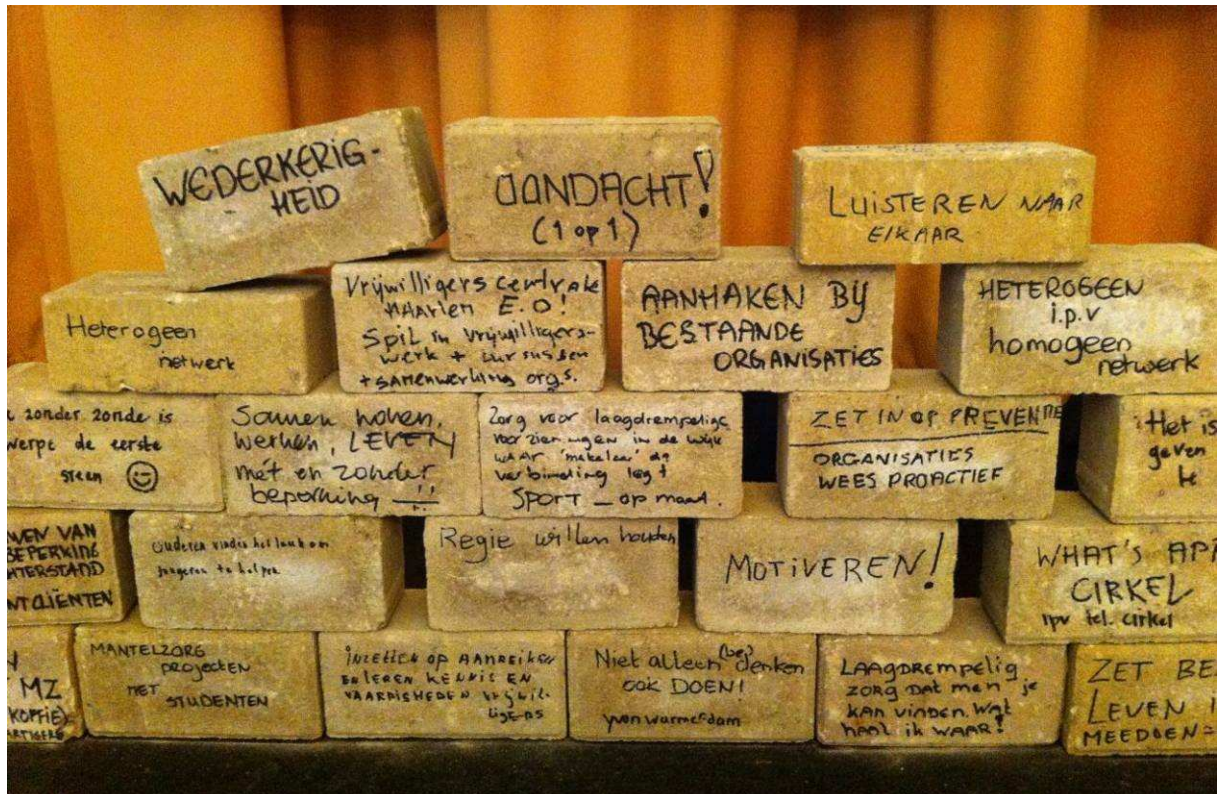 WEDERKERIG-
HEID
AANDACHT!
(1 op 1)
LUISTEREN NAAR
ELKAAR
Heterogeen
netwerk
Vrijwilligers centrale
HAARLEM E.O!
Spil in vrijwilligers-
werk + cursussen
+ SAMENWERKING orgs.
AANHAKEN BIJ
BESTAANDE
ORGANISATIES
HETEROGEEN
i.p.v
homogeen
netwerk
zonder zonde is
werpt de eerste
steen
Samen
werken, LEVEN
mét en zonder
beperking !!
Zorg voor laagdrempelige
voorzieningen in de wijk
WAAR 'makelaar' de
verbinding legt
SPORT _ op maat.
ZET IN OP PREVENTIE
ORGANISATIES
WEES PROACTIEF
Het is
geven
VAN
BEPERKING
CLIËNTEN
ouderen vinden het leuk om
jongeren te helpen
Regie willen houden
MOTIVEREN!
WHAT'S APP
CIRKEL
ipv tel. cirkel
MZ
KOFFIE)
MANTELZORG
PROJECTEN
MET
STUDENTEN
INZETTEN OP AANREIKEN
EN LEREN KENNIS EN
VAARDIGHEDEN vrijwil-
ligers
Niet alleen (be)denken
ook DOEN!
yvon warmerdam
LAAGDREMPELIG
ZORG DAT MEN je
KAN VINDEN. Wat
haal ik WAAR!
ZET
LEVEN
MEEDOEN=